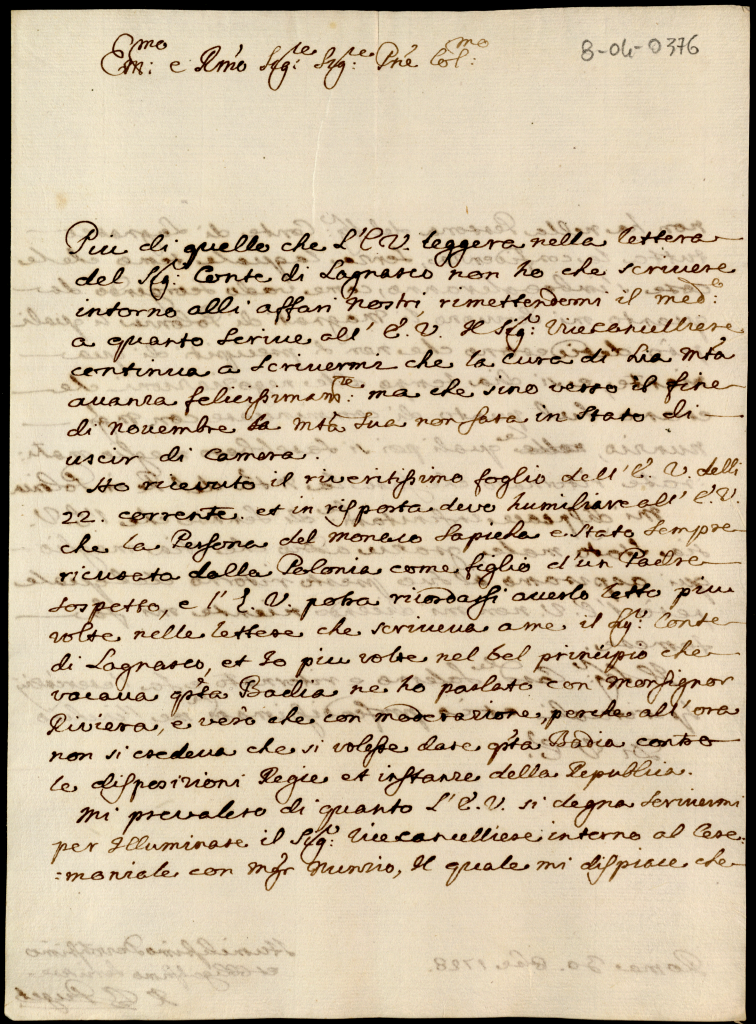 Em:mo e Rmo Sig:re Sig:re Pne Col:mo
B-04-0376
Piu di quello che L'E V. leggera nella lettera
del Sig:r Conte di Lagnasco non ho che scrivere
intorno alli affari nostri, rimettendomi il med:o
a quanto scrive all' E. V. Il Sig:r Vicecancelliere
continua a scrivermi che la cura di Sua Mtà
avanza felicissimam:te ma che sino verso il fine
di novembre la Mtà Sua non sara in stato di
uscir di camera.
Ho ricevuto il riveritissimo foglio dell' E. V. delli
22. corrente. et in risposta devo humiliare all' E. V.
che la Persona del monaco Sapieha e stato sempre
ricusata dalla Polonia come figlio d'un Padre
sospetto, e l'E. V. potra ricordarsi averlo letto piu
volte nelle lettere che scriveva a me il Sig:r Conte
di Lagnasco, et Io piu volte nel bel principio che
vacava qsta Badia ne ho parlato con Monsignor
Riviera, e vero che con moderazione, perche all'ora
non si credeva che si volesse dare qsta Badia contro
le disposizioni Regie et instanze della Republica.
Mi prevalero di quanto L'E. V. si degna scrivermi
per Illuminare il Sig:r Vicecancelliere intorno al Cere=
=moniale con Mgr Nunzio, Il quale mi dispiace che